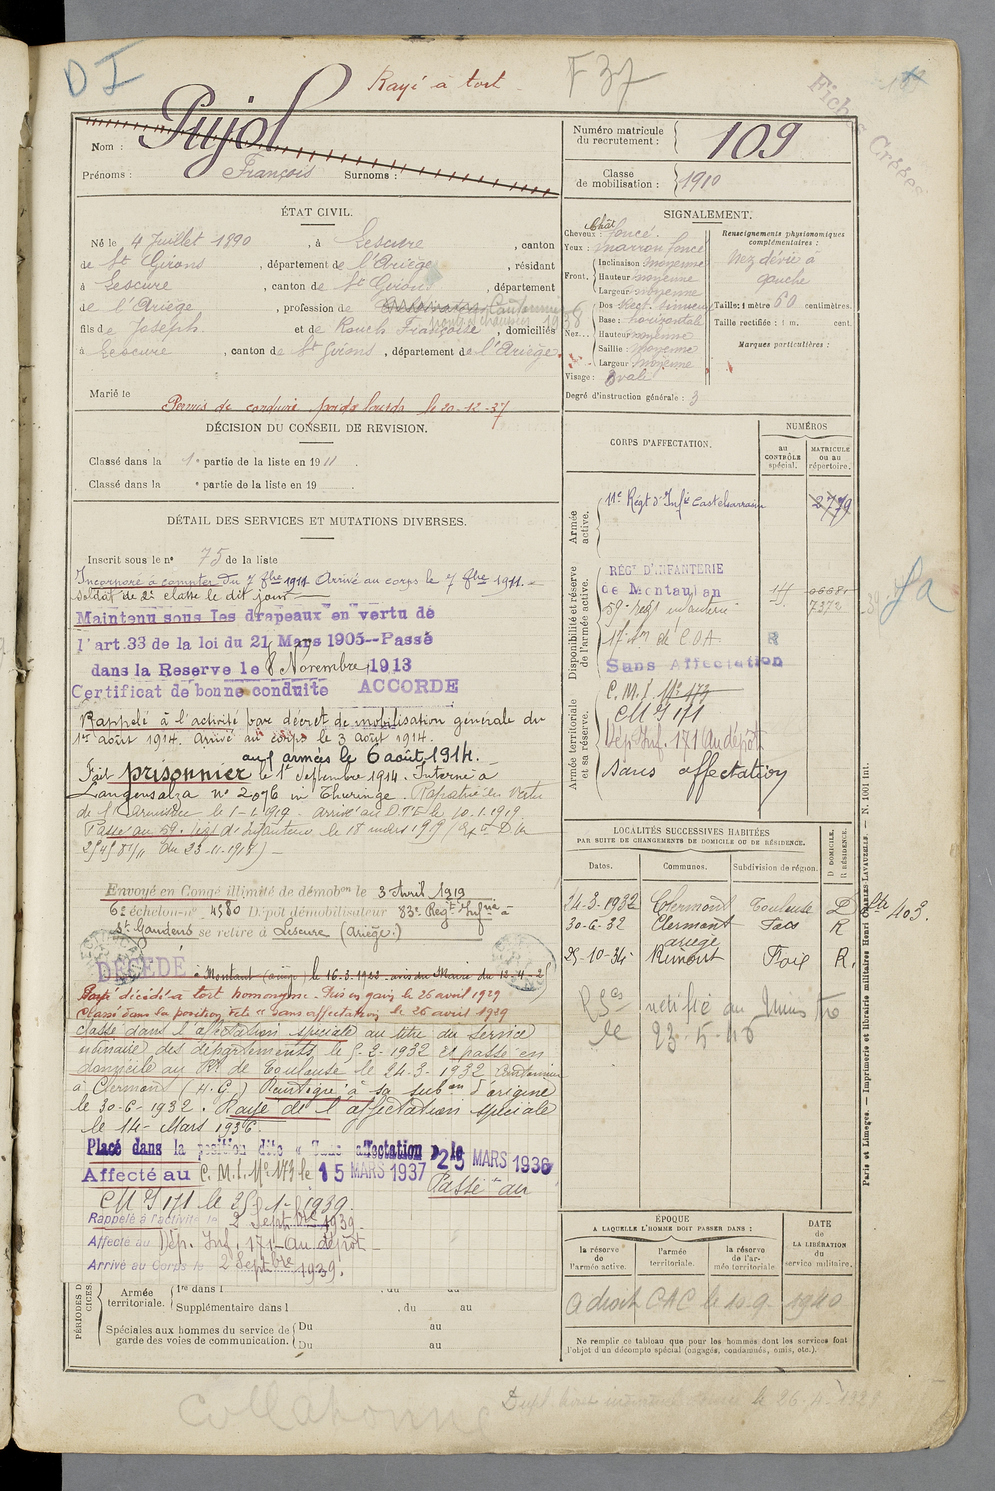 D I
Rayé à tort
F 37
Fiches Croisées
Nom : Pujol
Prénoms : François Surnoms :
Numéro matricule du recrutement : 109
Classe de mobilisation : 1910
ÉTAT CIVIL.
Né le 4 Juillet 1890, à Lescure, canton
de St Girons, département de l'Ariège, résidant
à Lescure, canton de St Girons, département
de l'Ariège, profession de Cantonnier
1938
fils de Joseph et de Rouch Françoise, domiciliés
à Lescure, canton de St Girons, département de l'Ariège.
Marié le
Permis de conduire poids lourds le 20-12-37
SIGNALEMENT.
Cheveux : Chât foncé.
Yeux : marron foncé
Front. Inclinaison moyenne
Hauteur moyenne
Largeur moyenne
Nez... Dos rect. sinueux
Base : horizontale
Hauteur moyenne
Saillie : moyenne
Largeur moyenne
Visage : ovale
Degré d'instruction générale : 3
Renseignements physionomiques complémentaires :
Nez dévié à
gauche
Taille : 1 mètre 60 centimètres.
Taille rectifiée : 1 m. cent.
Marques particulières :
DÉCISION DU CONSEIL DE REVISION.
Classé dans la 1e partie de la liste en 1911
Classé dans la e partie de la liste en 19
DÉTAIL DES SERVICES ET MUTATIONS DIVERSES.
Inscrit sous le n° 75 de la liste
Incorporé à compter du 7 8bre 1911 Arrivé au corps le 7 8bre 1911.
soldat de 2e classe le dit jour
Maintenu sous les drapeaux en vertu de
l'art.33 de la loi du 21 Mars 1905--Passé
dans la Reserve le 8 Novembre 1913
Certificat de bonne conduite ACCORDE
Rappelé à l'activité par décret de mobilisation générale du
1er août 1914. Arrivé au corps le 3 août 1914.
aux armées le 6 août 1914.
Fait prisonnier le 1er Septembre 1914. Interné à
Langensalza n° 2076 in Thuringe. Rapatrié en vertu
de l'armistice le 1-1-1919. arrivé au D.T.E le 10.1.1919
Passé au 59e régt d'infanterie le 18 mars 1919
Envoyé en Congé illimité de démobon le 3 Avril 1919
6e échelon-n° 4580 Dépôt démobilisateur 83e Régt Infrie à
St Gaudens se retire à Lescure (Ariège.)
DÉCÉDÉ à Montaut (ariège) le 16-3-1923
Rayé décédé à tort homonyme. Pris en gain le 26 avril 1929
Classé dans la position dite « sans affectation le 26 avril 1929
classé dans l'affectation spéciale au titre du service
ordinaire des départements, le 5-2-1932 et passé en
domicile au Rt de Toulouse le 24-3-1932 Cantonnier
à Clermont (H.G) Réintégré à sa subon d'origine
le 30-6-1932. Rayé de l'affectation spéciale
le 14 Mars 1936.
Placé dans la position dite « Sans affectation » le 25 MARS 1936
Affecté au C.M.I. N° 173 le 15 MARS 1937 Passé au
CM I 171 le 25-1-1939
Rappelé à l'activité le 2 Septbre 1939
Affecté au Dép. Inf. 171 - Au dépôt
Arrivé au Corps le 2 Septbre 1939.
CORPS D'AFFECTATION.
NUMÉROS
au CONTRÔLE spécial.
MATRICULE OU AU répertoire.
Armée active.
11e Régt d'Infie Castelsarrasin 2779
Disponibilité et réserve de l'armée active.
RÉGt D'INFANTERIE
de Montauban
59e régt infanterie 7372
17e Son de C.O.A. R
Sans Affectation
Armée territoriale et sa réserve.
C.M.I. N° 173
CM I 171
Dép. Inf. 171 Au dépôt
sans affectation
LOCALITÉS SUCCESSIVES HABITÉES
PAR SUITE DE CHANGEMENTS DE DOMICILE OU DE RÉSIDENCE.
Dates. Communes. Subdivision de région. D DOMICILE. R RÉSIDENCE.
24-3-1932 Clermont Toulouse D
403.
30-6-32 Clermont Foix R
ariège
25-10-34 Rimont Foix R.
notifié au
le 23-5-40
ÉPOQUE
A LAQUELLE L'HOMME DOIT PASSER DANS :
DATE DE LA LIBÉRATION du service militaire.
la réserve de l'armée active.
l'armée territoriale.
la réserve de l'armée territoriale
A droit CAC le 10-9-1940
Ne remplir ce tableau que pour les hommes dont les services font
l'objet d'un décompte spécial (engagés, condamnés, omis, etc.).
PÉRIODES D'EXERCICES.
Armée territoriale. 1re dans l , du au
Supplémentaire dans l , du au
Spéciales aux hommes du service de garde des voies de communication. Du au
Du au
Paris et Limoges. — Imprimerie et librairie militaires Henri CHARLES-LAVAUZELLE. — N. 1001 Int.
le 26-4-1928